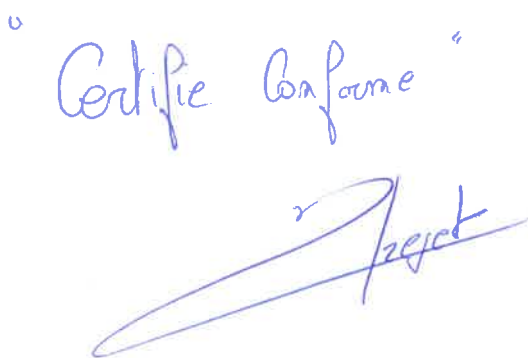 " Certifie Conforme "